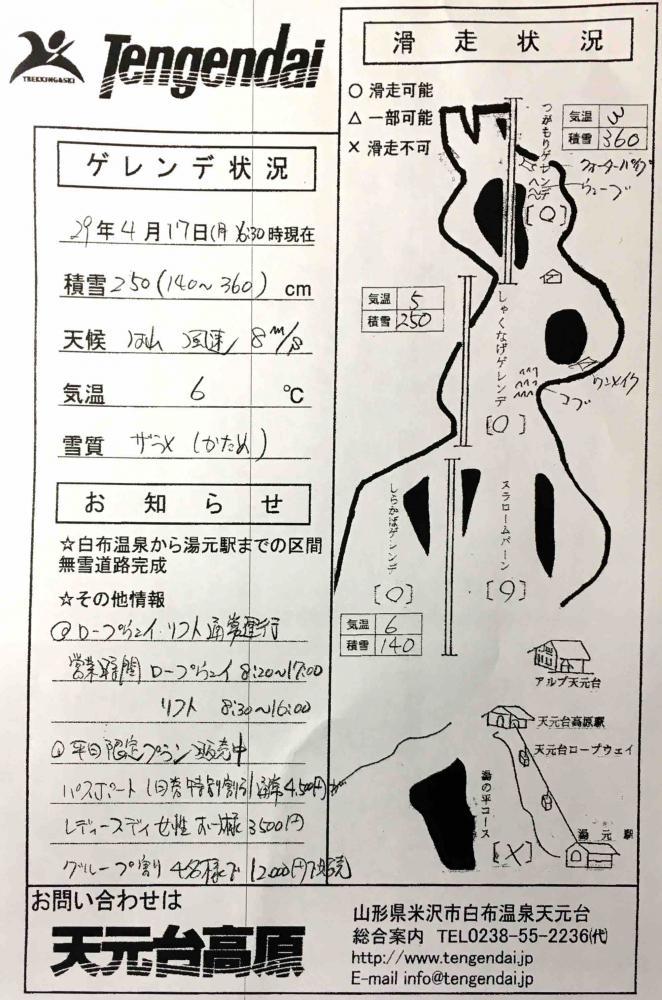 TREKKING&SKI
Tengendai
ゲレンデ状況
29年4月17日(月) 6:30時現在
積雪 250 (140~360) cm
天候 風速 8m/s
気温 6 ℃
雪質 ザラメ (かため)
お知らせ
☆白布温泉から湯元駅までの区間
無雪道路完成
☆その他情報
ロープウェイ・リフト通常運行
営業時間 ロープウェイ 8:20~17:00
リフト 8:30~16:00
平日限定プラン販売中
パスポート1日券特別割引 通常4,500円が
レディースディ 女性お一人様 3500円
グループ割り 4名様で 12,000円で販売
滑走状況
○ 滑走可能
△ 一部可能
× 滑走不可
つがもりゲレンデ
[○]
気温 3
積雪 360
クォーターパイプ
ウェーブ
気温 5
積雪 250
しゃくなげゲレンデ
[○]
ワンメイク
コブ
しらかばゲレンデ
[○]
スラロームバーン
[○]
気温 6
積雪 140
アルブ天元台
天元台高原駅
天元台ロープウェイ
湯の平コース
[×]
湯元駅
お問い合わせは
天元台高原
山形県米沢市白布温泉天元台
総合案内 TEL0238-55-2236㈹
http://www.tengendai.jp
E-mail info@tengendai.jp